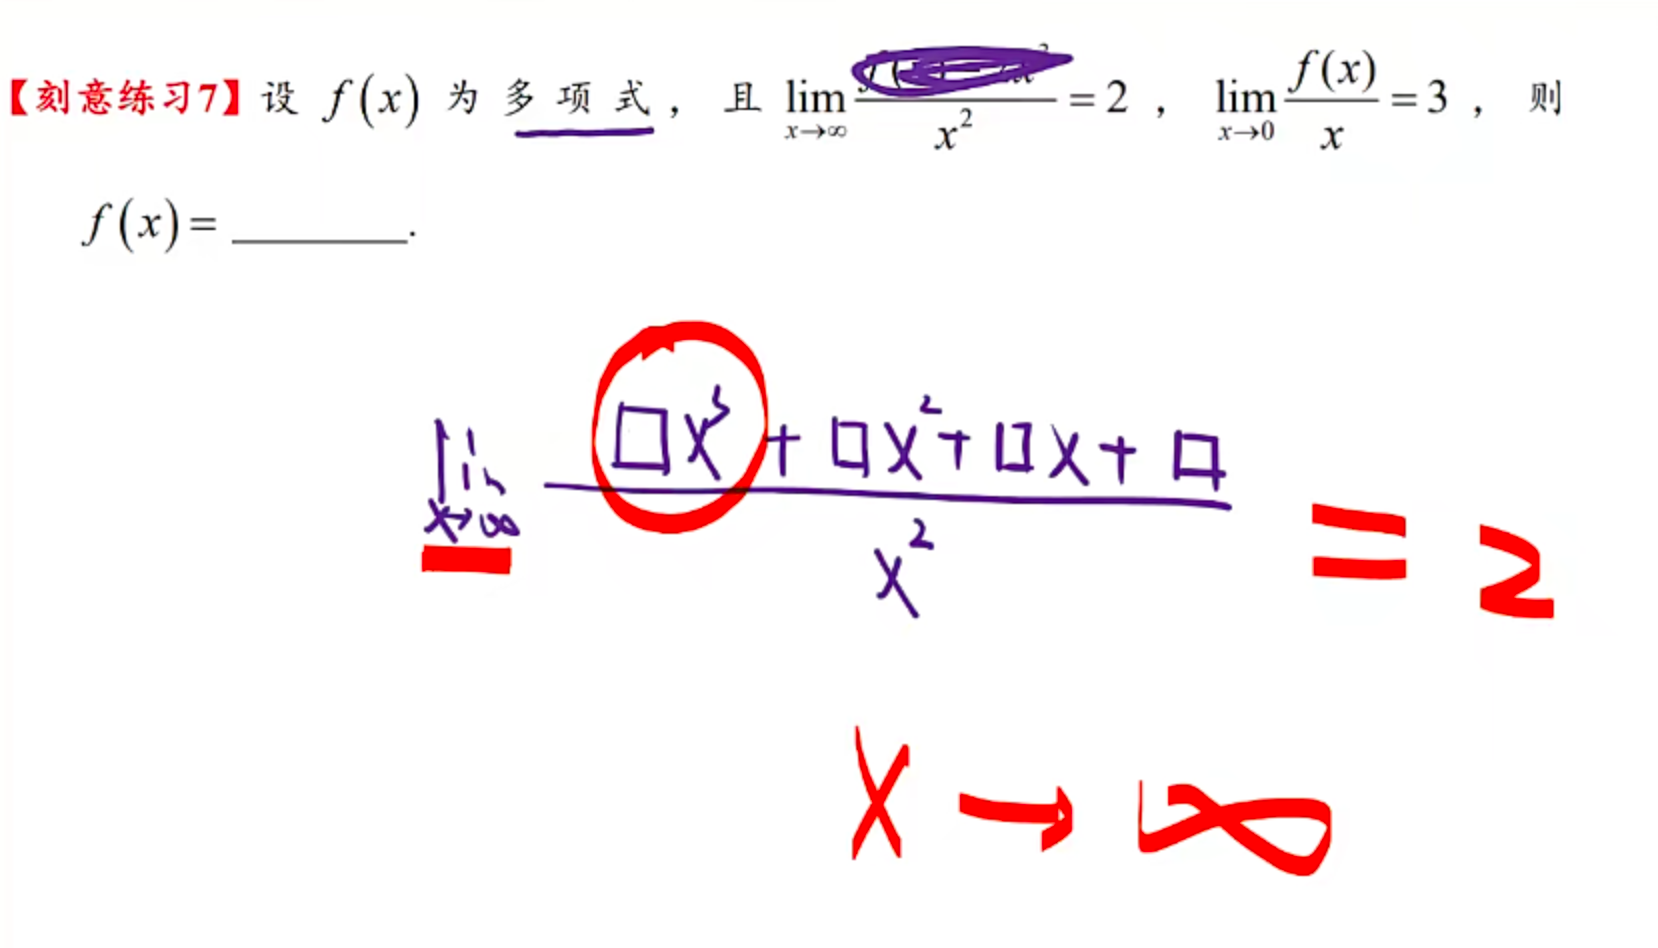 【刻意练习7】设 f(x) 为多项式，且 lim x→∞ / x² = 2，lim x→0 f(x)/x = 3，则
f(x) = ________.
lim x→∞ (□x³ + □x² + □x + □)/x² = 2
x → ∞